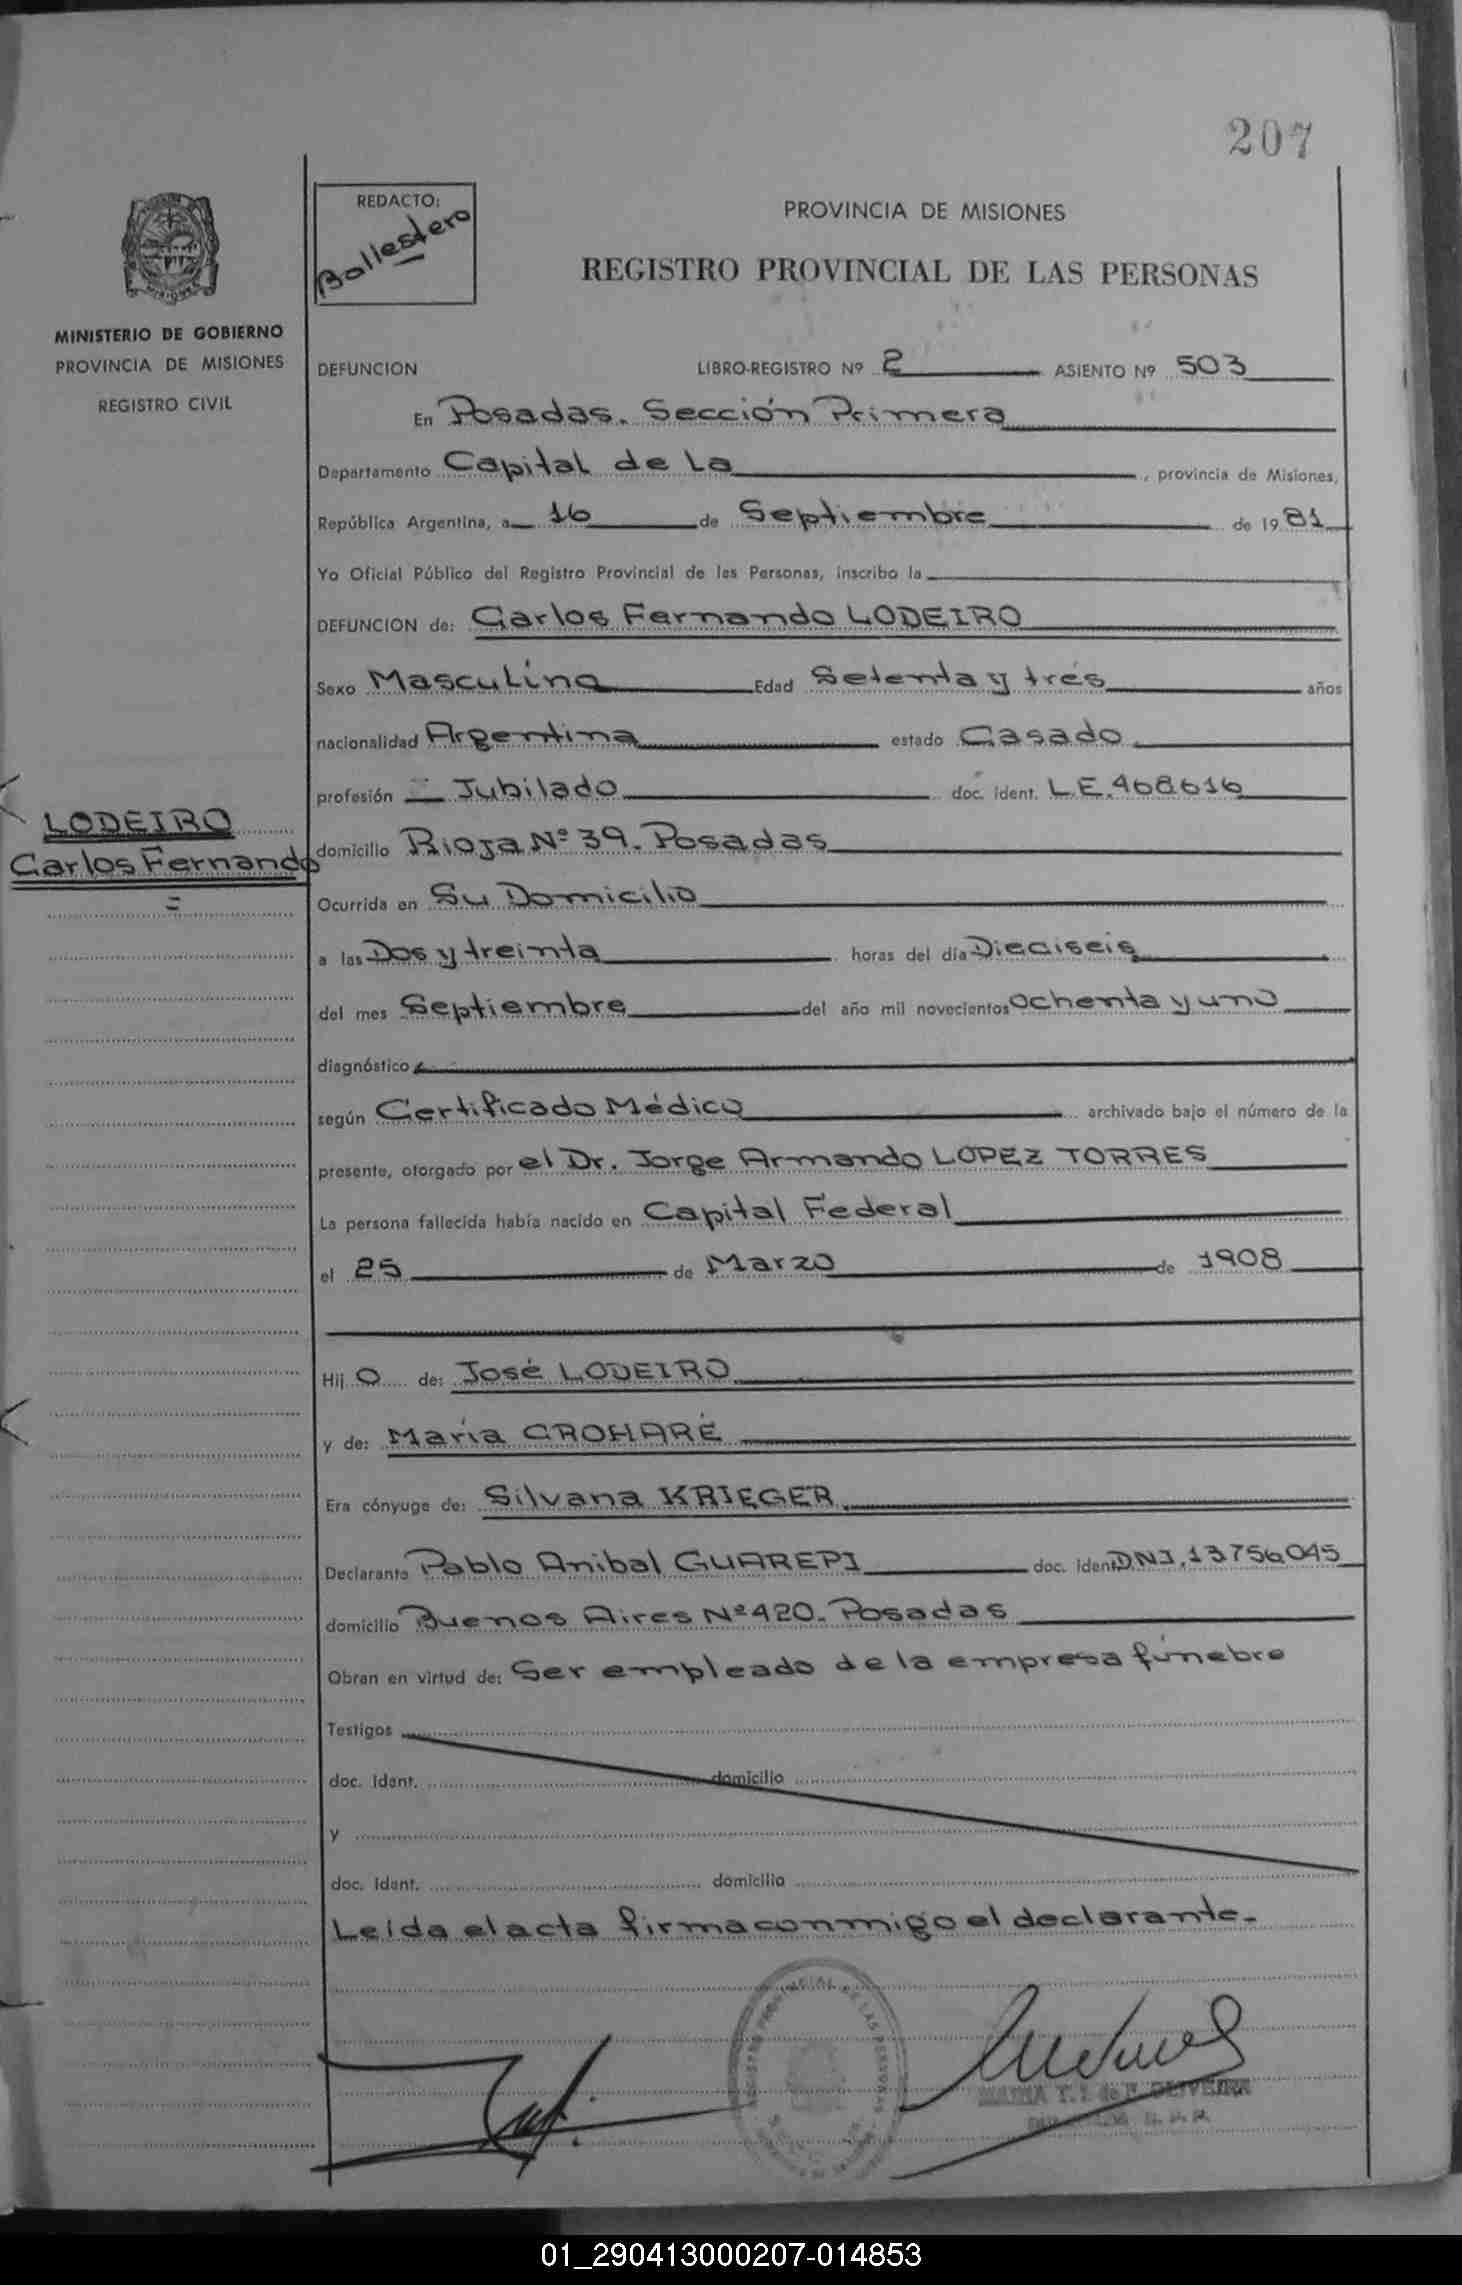 207
REDACTO:
Ballestero
PROVINCIA DE MISIONES
REGISTRO PROVINCIAL DE LAS PERSONAS
MINISTERIO DE GOBIERNO
PROVINCIA DE MISIONES
REGISTRO CIVIL
DEFUNCION LIBRO-REGISTRO Nº 2 ASIENTO Nº 503
En Posadas. Sección Primera
Departamento Capital de la, provincia de Misiones,
República Argentina, a 16 de Septiembre de 1981
Yo Oficial Público del Registro Provincial de las Personas, inscribo la
DEFUNCION de: Carlos Fernando LODEIRO
Sexo Masculino Edad Setenta y trés años
nacionalidad Argentina estado Casado
profesión Jubilado doc. ident. L.E. 468616
LODEIRO
Carlos Fernando
domicilio Rioja Nº 39. Posadas
Ocurrida en Su Domicilio
a las Dos y treinta horas del día Dieciseis
del mes Septiembre del año mil novecientos Ochenta y uno
diagnóstico
según Certificado Médico archivado bajo el número de la
presente, otorgado por el Dr. Jorge Armando LOPEZ TORRES
La persona fallecida había nacido en Capital Federal
el 25 de Marzo de 1908
Hij o de: José LODEIRO
y de: María CROHARÉ
Era cónyuge de: Silvana KRIEGER
Declarante Pablo Anibal GUAREPI doc. ident. DNI. 13756045
domicilio Buenos Aires Nº 420. Posadas
Obran en virtud de: Ser empleado de la empresa fúnebre
Testigos
doc. ident. domicilio
y
doc. ident. domicilio
Leída el acta firma conmigo el declarante.-
REGISTRO PROVINCIAL DE LAS PERSONAS
MARIA T. OLIVEIRA
01_290413000207-014853